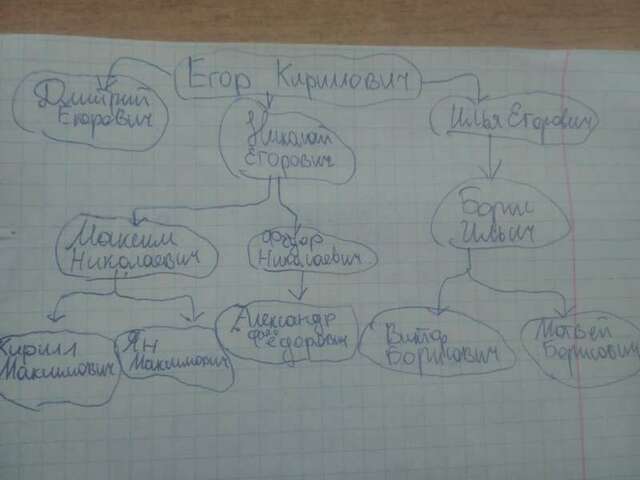 Егор Киримович
Дмитрий
Егорович
Николай
Егорович
Илья Егорович
Максим
Николаевич
Фёдор
Николаевич
Борис
Ильич
Кирилл
Максимович
Ян
Максимович
Александр
Фёдорович
Виктор
Борисович
Матвей
Борисович